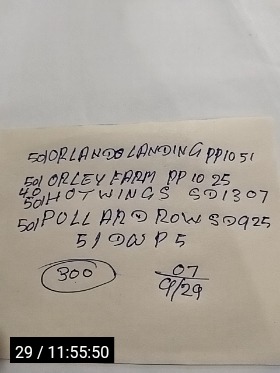 50/ORLANDO LANDING PP1051
50/ ORLEY FARM PP 1025
40
50/HOTWINGS SD1307
50/POLLARD ROW SD925
51DWP5
300
07
9/29
29 / 11:55:50